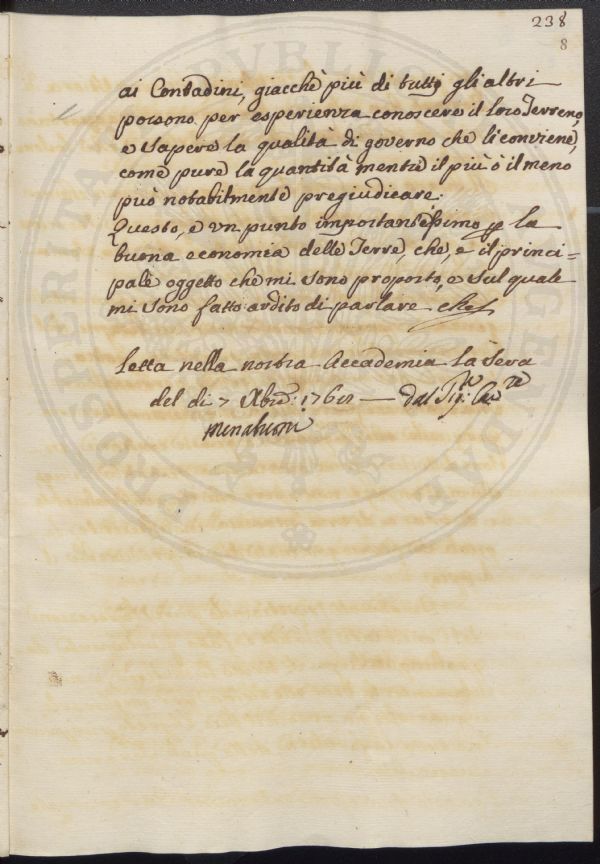 238
8
ai Contadini, giacchè più di tutti gli altri
possono per esperienza conoscere il loro Terreno,
e sapere la qualità di governo che li conviene,
come pure la quantità mentre il più ò il meno
può notabilmente pregiudicare.
Questo, e un punto importantessimo p la
buona economia delle Terre, che, e il princi=
pale oggetto che mi sono proposto, e sul quale
mi sono fatto ardito di parlare
Letta nella nostra Accademia la sera
del di 7 Xbre: — Dal Sig:
REPVBLICAE
PROSPERITATI